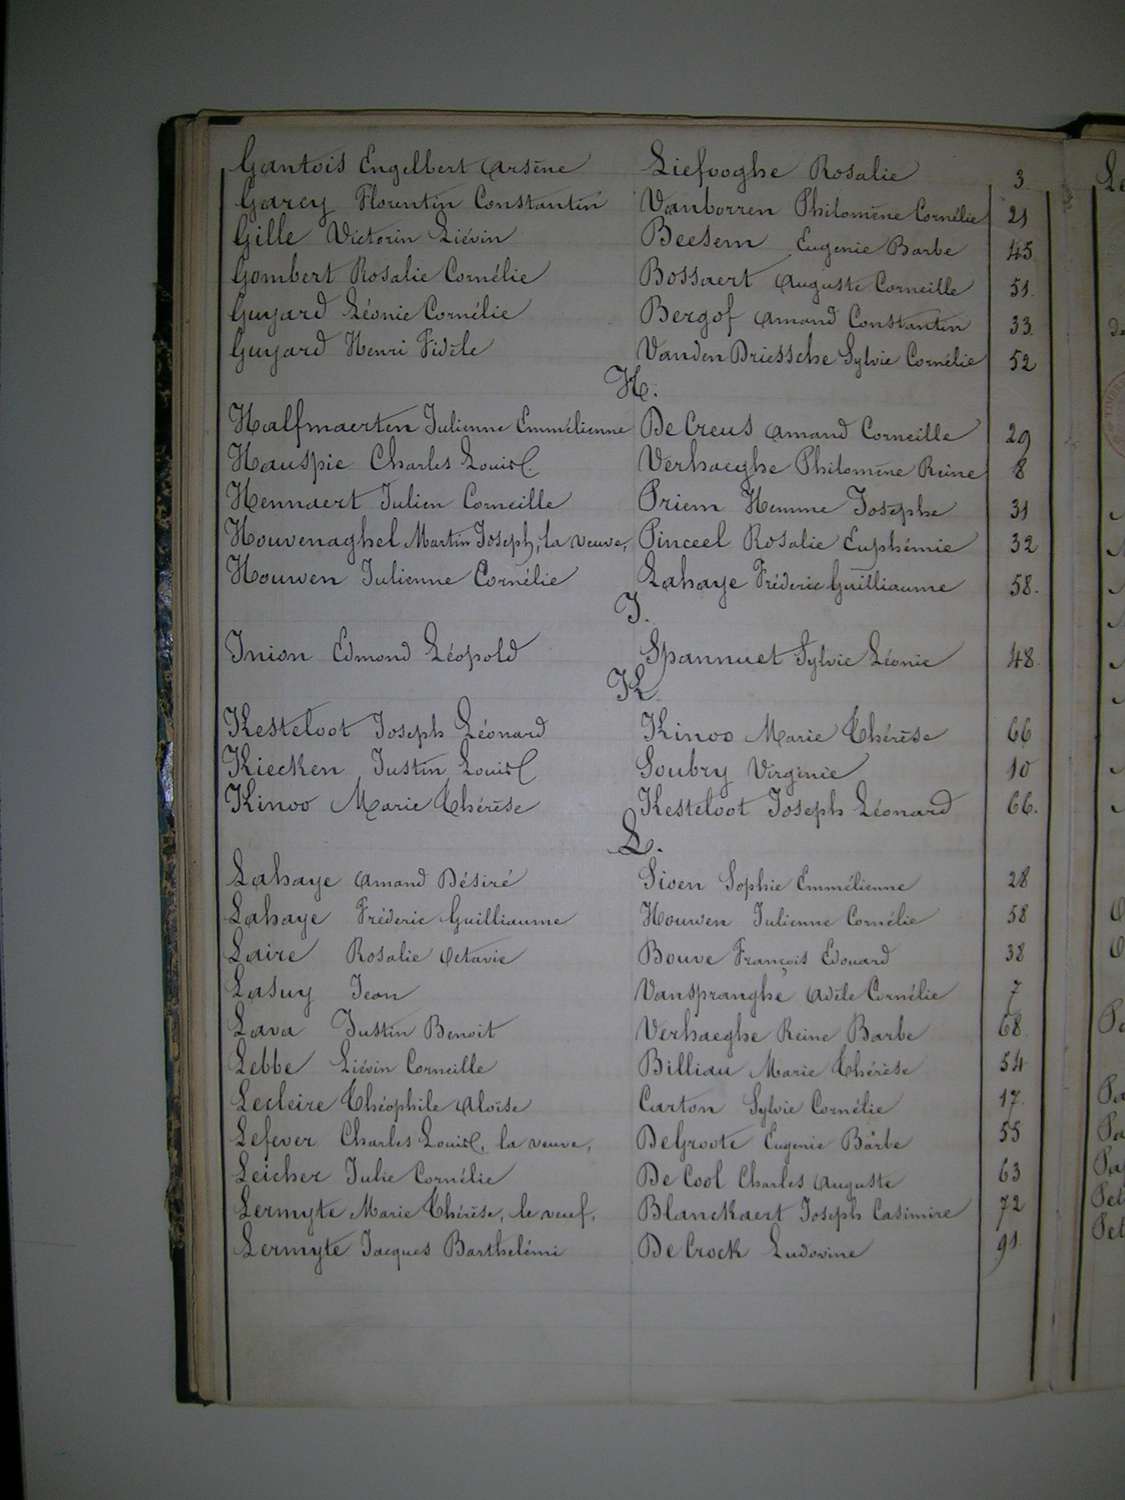 Gantois Engelbert Arsène Liefooghe Rosalie 3
Garcy Florentin Constantin Vanborren Philomène Cornélie 21
Gille Victorin Liévin Beesem Eugenie Barbe 45
Gombert Rosalie Cornélie Bossaert Auguste Corneille 51.
Guyard Léonie Cornélie Bergof Amand Constantin 33.
Guyard Henri Fidèle Vanden Driessche Sylvie Cornélie 52
H.
Halfmaerten Julienne Emmélienne De Creus Amand Corneille 29
Hauspie Charles Louis Verhaeghe Philomène Reine 8
Hennaert Julien Corneille Priem Hemme Josephe 31
Houvenaghel Martin Joseph, la veuve, Pinceel Rosalie Euphémie 32
Houwen Julienne Cornélie Lahaye Fréderic Guilliaume 58.
I.
Inion Edmond Léopold Spannuet Sylvie Léonie 48.
K.
Kesteloot Joseph Léonard Kinoo Marie Thérèse 66
Kiecken Justin Louis Soubry Virginie 10
Kinoo Marie Thérèse Kesteloot Joseph Léonard 66.
L.
Lahaye Amand Désiré Sioen Sophie Emmélienne 28
Lahaye Fréderic Guilliaume Houwen Julienne Cornélie 58
Laire Rosalie Octavie Bouve François Edouard 38
Lasuy Jean Vanspranghe Adèle Cornélie 7
Lava Justin Benoit Verhaeghe Reine Barbe 68.
Lebbe Liévin Corneille Billiau Marie Thérèse 54
Lecleire Théophile Aloïse Carton Sylvie Cornélie 17.
Lefever Charles Louis, la veuve, De Groote Eugenie Barbe 55
Leicher Julie Cornélie De Cool Charles Auguste 63
Lermyte Marie Thérèse, le veuf. Blanckaert Joseph Casimire 72
Lermyte Jacques Barthelémi De Crock Ludovine 91.